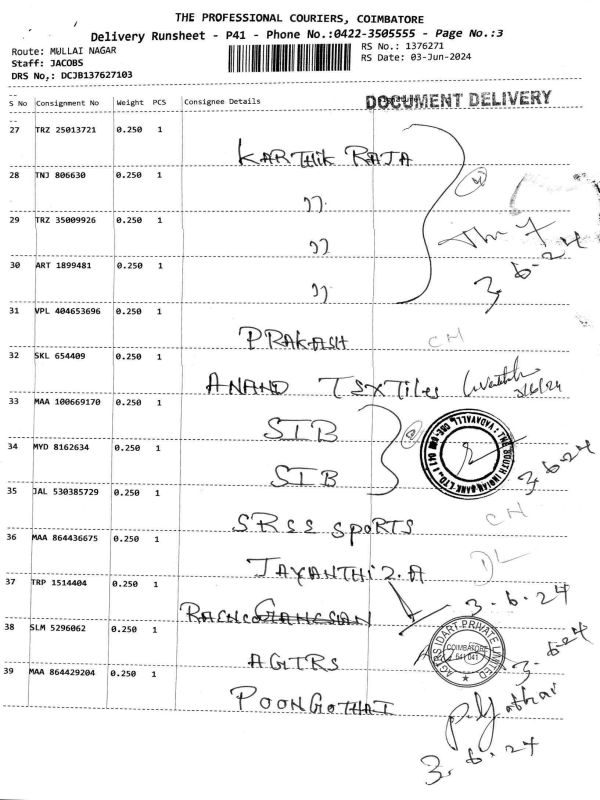 THE PROFESSIONAL COURIERS, COIMBATORE
Delivery Runsheet - P41 - Phone No.:0422-3505555 - Page No.:3
Route: MULLAI NAGAR
RS No.: 1376271
Staff: JACOBS
RS Date: 03-Jun-2024
DRS No,: DCJB137627103
S No Consignment No Weight PCS Consignee Details
DOCUMENT DELIVERY
27 TRZ 25013721 0.250 1 KARTHIK RAJA
28 TNJ 806630 0.250 1 ''
29 TRZ 35009926 0.250 1 ''
30 ART 1899481 0.250 1 ''
3-6-24
31 VPL 404653696 0.250 1 PRAKASH CH
32 SKL 654409 0.250 1 ANAND TEXTiles
3/6/24
33 MAA 100669170 0.250 1 SIB
34 MYD 8162634 0.250 1 SIB
THE SOUTH INDIAN BANK LTD., VADAVALLI
3-6-24
35 JAL 530385729 0.250 1 SRSS SPORTS CH
36 MAA 864436675 0.250 1 JAYANTHI 2.A DL
37 TRP 1514404 0.250 1
3.6.24
38 SLM 5296062 0.250 1 AGIRS
AGIRS IDART PRIVATE LIMITED
COIMBATORE
641 041
3-6-24
39 MAA 864429204 0.250 1 POONGOTHAI
3.6.24